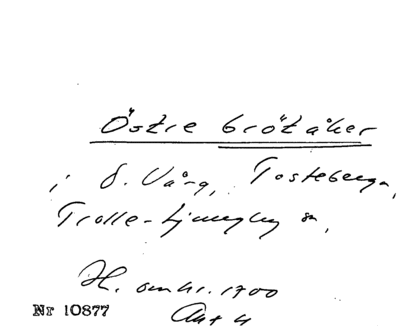 Östre brötåker
i S. Vång, Tosteberga,
Trolle-Ljungby sn,
H. omkr. 1700
Nr 10877